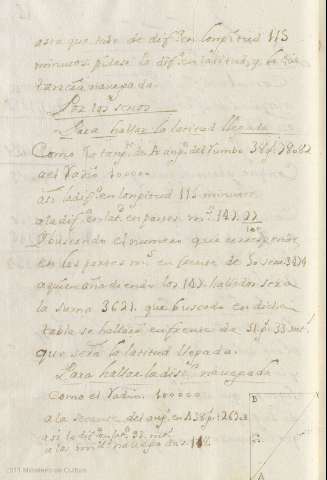 que de dif.ª en longitud 115
minutos pidese la dif.ª en latitud, y la dis
tancia navegada.
Por los senos
Para hallar la latitud llegada
Como la tang.te de A ang.º del Rumbo 38 g.s 78082
a el Radio 100000
asi la dif.ª en longitud 115 minutos
a la dif.ª en lat.d en partes m.s 147.
Y buscando el numero que corresponde
en las partes m.s en frente de 30 3474
a quien añadiendo los 147 hallados sera
la suma 3621. que buscada en dicha
tabla se hallará en frente de 51 g.s 33 mt.s
que será la latitud llegada.
Para hallar la dist.ª navegada
Como el Radio 100000
a la secante del ang.º en A 38 g.s
asi la dif.ª en lat.d 93. mt.s
a la navegada 118
B
A
2011 Ministerio de Cultura